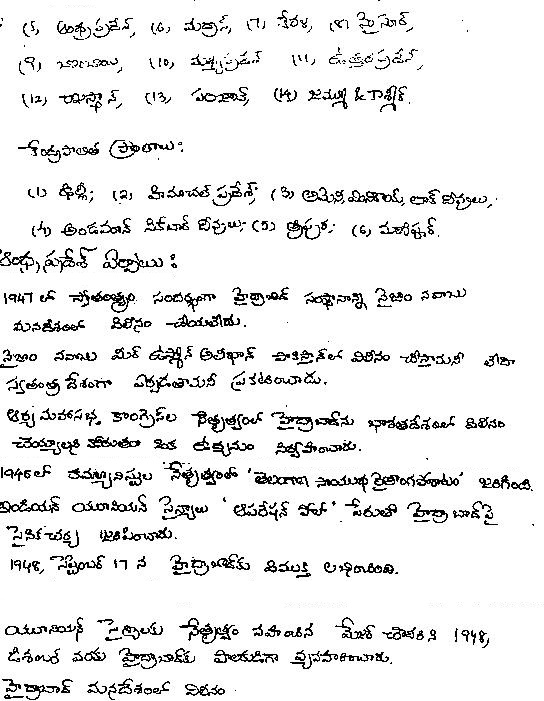 (5) ఆంధ్రప్రదేశ్, (6) మద్రాస్, (7) కేరళ, (8) మైసూర్,
(9) బొంబాయి, (10) మధ్యప్రదేశ్ (11) ఉత్తరప్రదేశ్,
(12) రాజస్థాన్, (13) పంజాబ్, (14) జమ్ము & కాశ్మీర్.
కేంద్రపాలిత ప్రాంతాలు:
(1) ఢిల్లీ; (2) హిమాచల్ ప్రదేశ్; (3) అమెని, మినికాయ్, లాక్ దీవులు,
(4) అండమాన్ నికోబార్ దీవులు; (5) త్రిపుర; (6) మణిపూర్.
ఏర్పాటు:
1947 లో స్వాతంత్ర్యం సందర్భంగా హైద్రాబాద్ సంస్థానాన్ని నైజాం నవాబు
మనదేశంలో విలీనం చేయలేదు.
నైజాం నవాబు మీర్ ఉస్మాన్ అలీఖాన్ పాకిస్తాన్‌లో విలీనం చేస్తామని లేదా
స్వతంత్ర దేశంగా ఏర్పడతామని ప్రకటించాడు.
ఆర్య మహాసభ, కాంగ్రెస్‌ల నేతృత్వంలో హైద్రాబాద్‌ను భారతదేశంలో విలీనం
చేయ్యాలని కోరుతూ ఒక ఉద్యమం నిర్వహించారు.
1946లో కమ్యూనిస్టుల నేతృత్వంలో 'తెలంగాణ సాయుధ రైతాంగపోరాటం' జరిగింది.
ఇండియన్ యూనియన్ సైన్యాలు 'ఆపరేషన్ పోలో' పేరుతో హైద్రాబాద్‌పై
సైనికచర్య జరిపించారు.
1948, సెప్టెంబర్ 17 న హైద్రాబాద్‌కు విముక్తి లభించింది.
యూనియన్ సైన్యాలకు నేతృత్వం వహించిన మేజర్ చౌదరిని 1948,
డిశంబర్ వరకు హైద్రాబాద్‌కు పాలకుడిగా వ్యవహరించారు.
హైద్రాబాద్ మనదేశంలో విలీనం